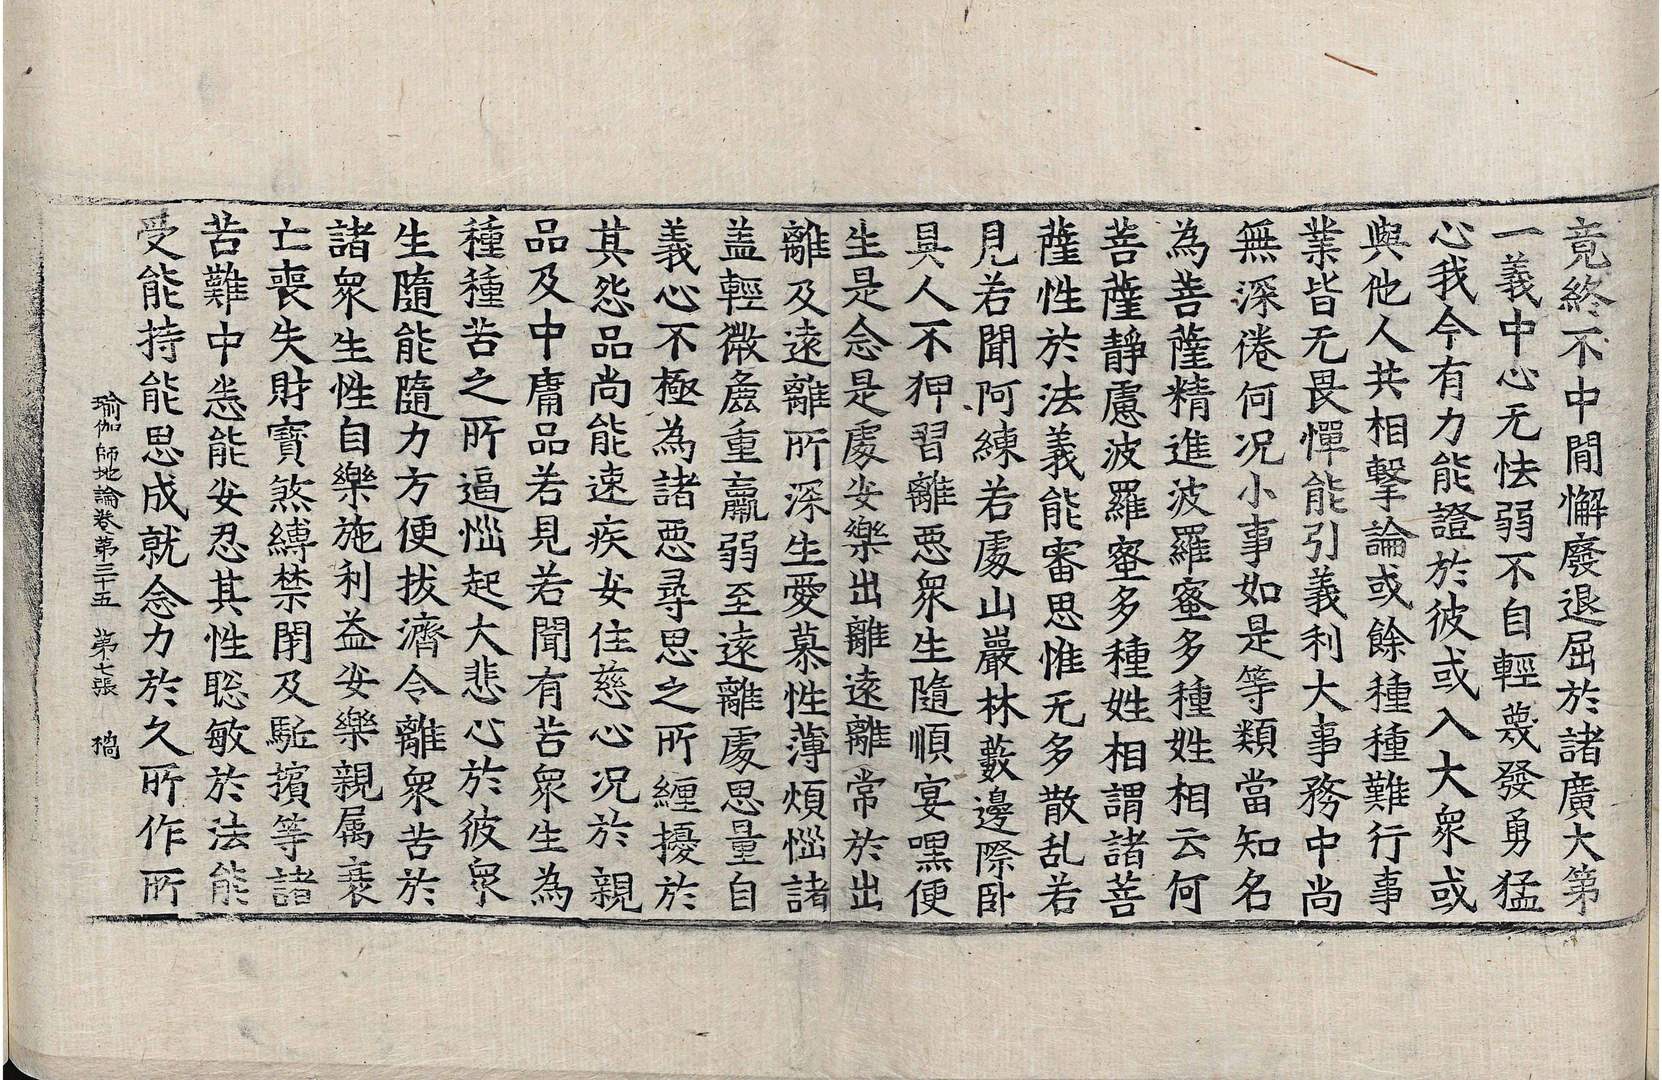 竟終不中閒懈廢退屈於諸廣大第
一義中心无怯弱不自輕蔑發勇猛
心我今有力能證於彼或入大衆或
與他人共相擊論或餘種種難行事
業皆无畏憚能引義利大事務中尚
無深倦何况小事如是等類當知名
為菩薩精進波羅蜜多種姓相云何
菩薩静慮波羅蜜多種姓相謂諸菩
薩性於法義能審思惟无多散乱若
見若聞阿練若處山巖林藪邊際卧
具人不狎習離惡衆生隨順宴嘿便
生是念是處安樂出離遠離常於出
離及遠離所深生愛慕性薄煩惱諸
盖輕微麁重羸弱至遠離處思量自
義心不極為諸惡尋思之所纏擾於
其怨品尚能速疾安住慈心况於親
品及中庸品若見若聞有苦衆生為
種種苦之所逼惱起大悲心於彼衆
生隨能隨力方便拔濟令離衆苦於
諸衆生性自樂施利益安樂親属衰
亡喪失財寶煞縛禁閉及駈擯等諸
苦難中悉能安忍其性聡敏於法能
受能持能思成就念力於久所作所
瑜伽師地論卷第三十五 第七張 禍